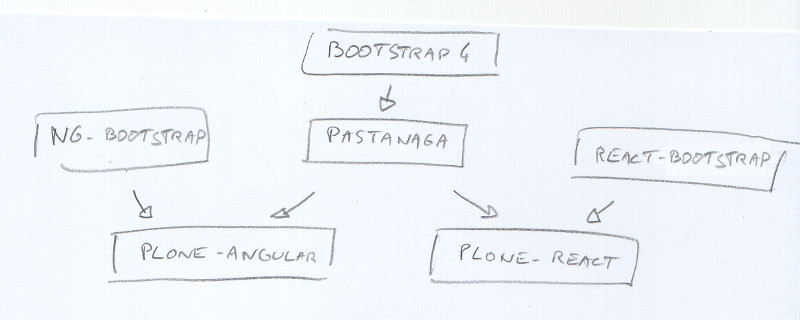 BOOTSTRAP 4
NG-BOOTSTRAP
PASTANAGA
REACT-BOOTSTRAP
PLONE-ANGULAR
PLONE-REACT